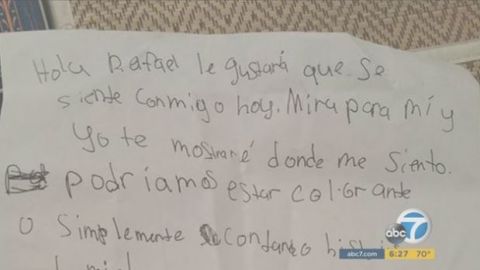 Hola Rafael le gustará que se
siente conmigo hoy. Mira para mí y
yo te mostraré donde me siento.
podriamos estar colorante
o simplemente contando
abc 7
abc7.com 6:27 70°